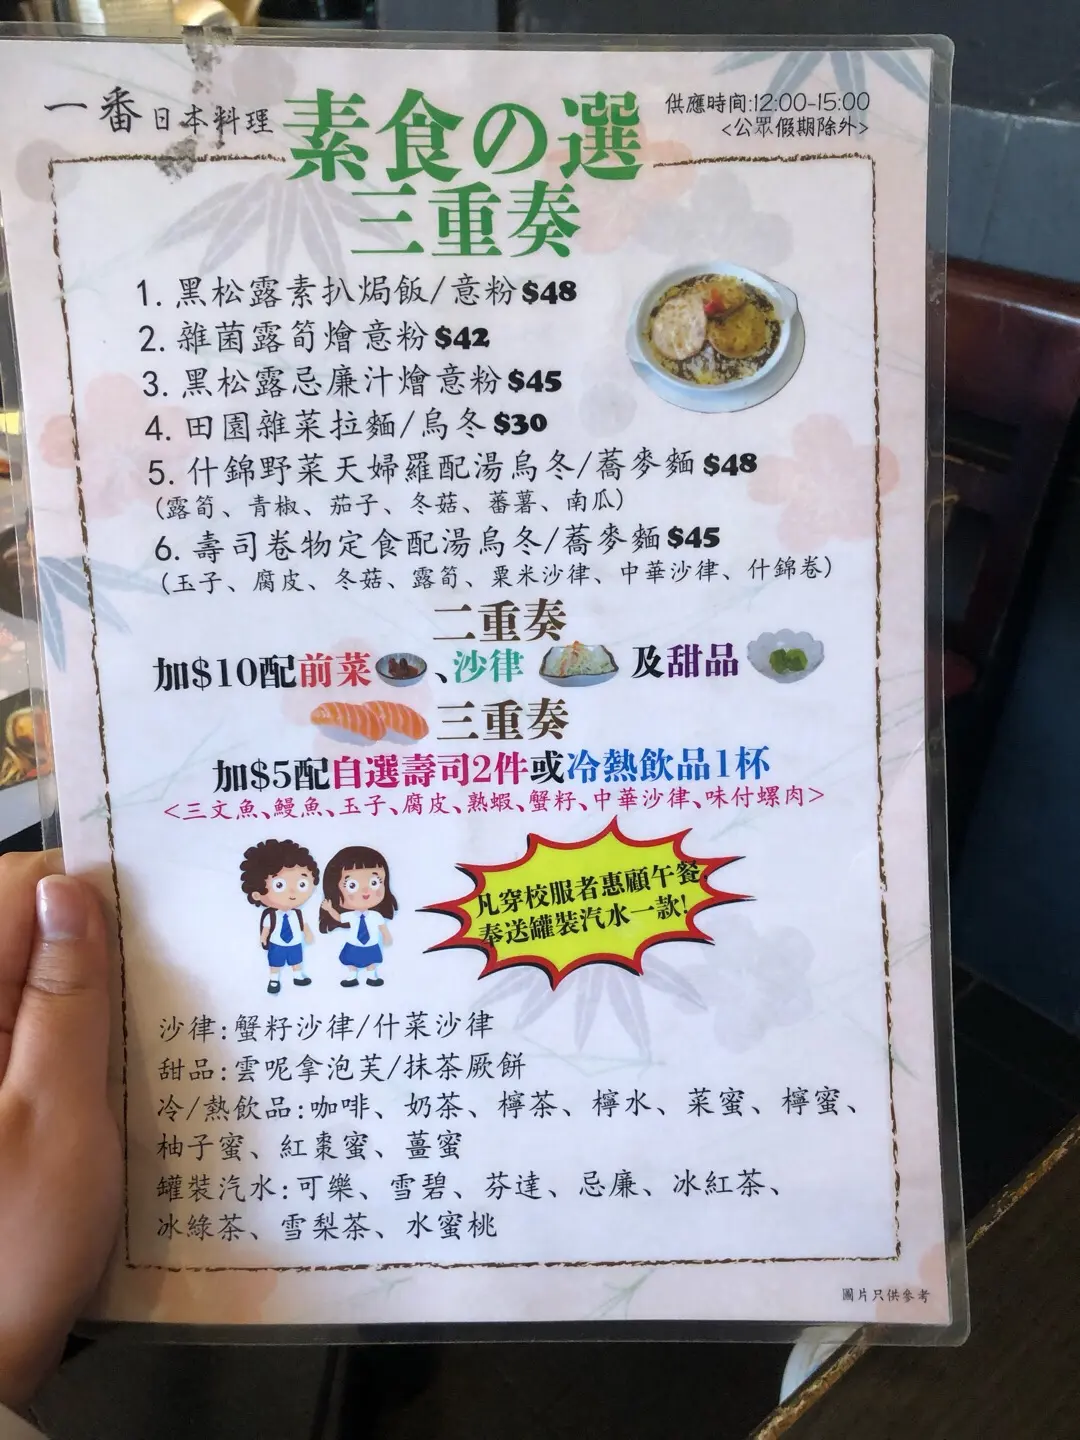 一番日本料理
素食の選
供應時間:12:00-15:00
<公眾假期除外>
三重奏
1. 黑松露素扒焗飯/意粉$48
2. 雜菌露筍燴意粉$42
3. 黑松露忌廉汁燴意粉$45
4. 田園雜菜拉麵/烏冬$30
5. 什錦野菜天婦羅配湯烏冬/蕎麥麵$48
(露筍、青椒、茄子、冬菇、蕃薯、南瓜)
6. 壽司卷物定食配湯烏冬/蕎麥麵$45
(玉子、腐皮、冬菇、露筍、粟米沙律、中華沙律、什錦卷)
二重奏
加$10配前菜、沙律 及甜品
三重奏
加$5配自選壽司2件或冷熱飲品1杯
<三文魚、鰻魚、玉子、腐皮、熟蝦、蟹籽、中華沙律、味付螺肉>
凡穿校服者惠顧午餐
奉送罐裝汽水一款!
沙律:蟹籽沙律/什菜沙律
甜品:雲呢拿泡芙/抹茶厥餅
冷/熱飲品:咖啡、奶茶、檸茶、檸水、菜蜜、檸蜜、
柚子蜜、紅棗蜜、薑蜜
罐裝汽水:可樂、雪碧、芬達、忌廉、冰紅茶、
冰綠茶、雪梨茶、水蜜桃
圖片只供參考